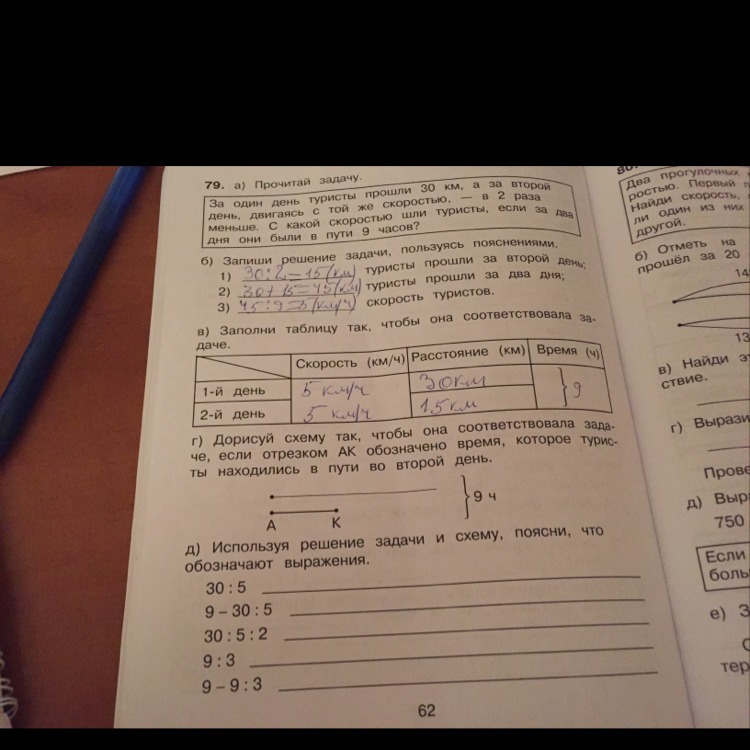 79. а) Прочитай задачу.
За один день туристы прошли 30 км, а за второй
день, двигаясь с той же скоростью, — в 2 раза
меньше. С какой скоростью шли туристы, если за два
дня они были в пути 9 часов?
б) Запиши решение задачи, пользуясь пояснениями.
1) 30:2=15(км) туристы прошли за второй день;
2) 30+15=45(км) туристы прошли за два дня;
3) 45:9=5(км/ч) скорость туристов.
в) Заполни таблицу так, чтобы она соответствовала за-
даче.
Скорость (км/ч) Расстояние (км) Время (ч)
1-й день 5 км/ч 30км
9
2-й день 5 км/ч 15км
г) Дорисуй схему так, чтобы она соответствовала зада-
че, если отрезком АК обозначено время, которое турис-
ты находились в пути во второй день.
9 ч
А К
д) Используя решение задачи и схему, поясни, что
обозначают выражения.
30 : 5
9 – 30 : 5
30 : 5 : 2
9 : 3
9 – 9 : 3
62
80.
Два прогулочных
ростью. Первый
Найди скорость,
ли один из них
другой.
б) Отметь на
прошёл за 20
14
13
в) Найди
ствие.
г) Вырази
Прове
д) Выра
750
Если
боль
е) З
тер